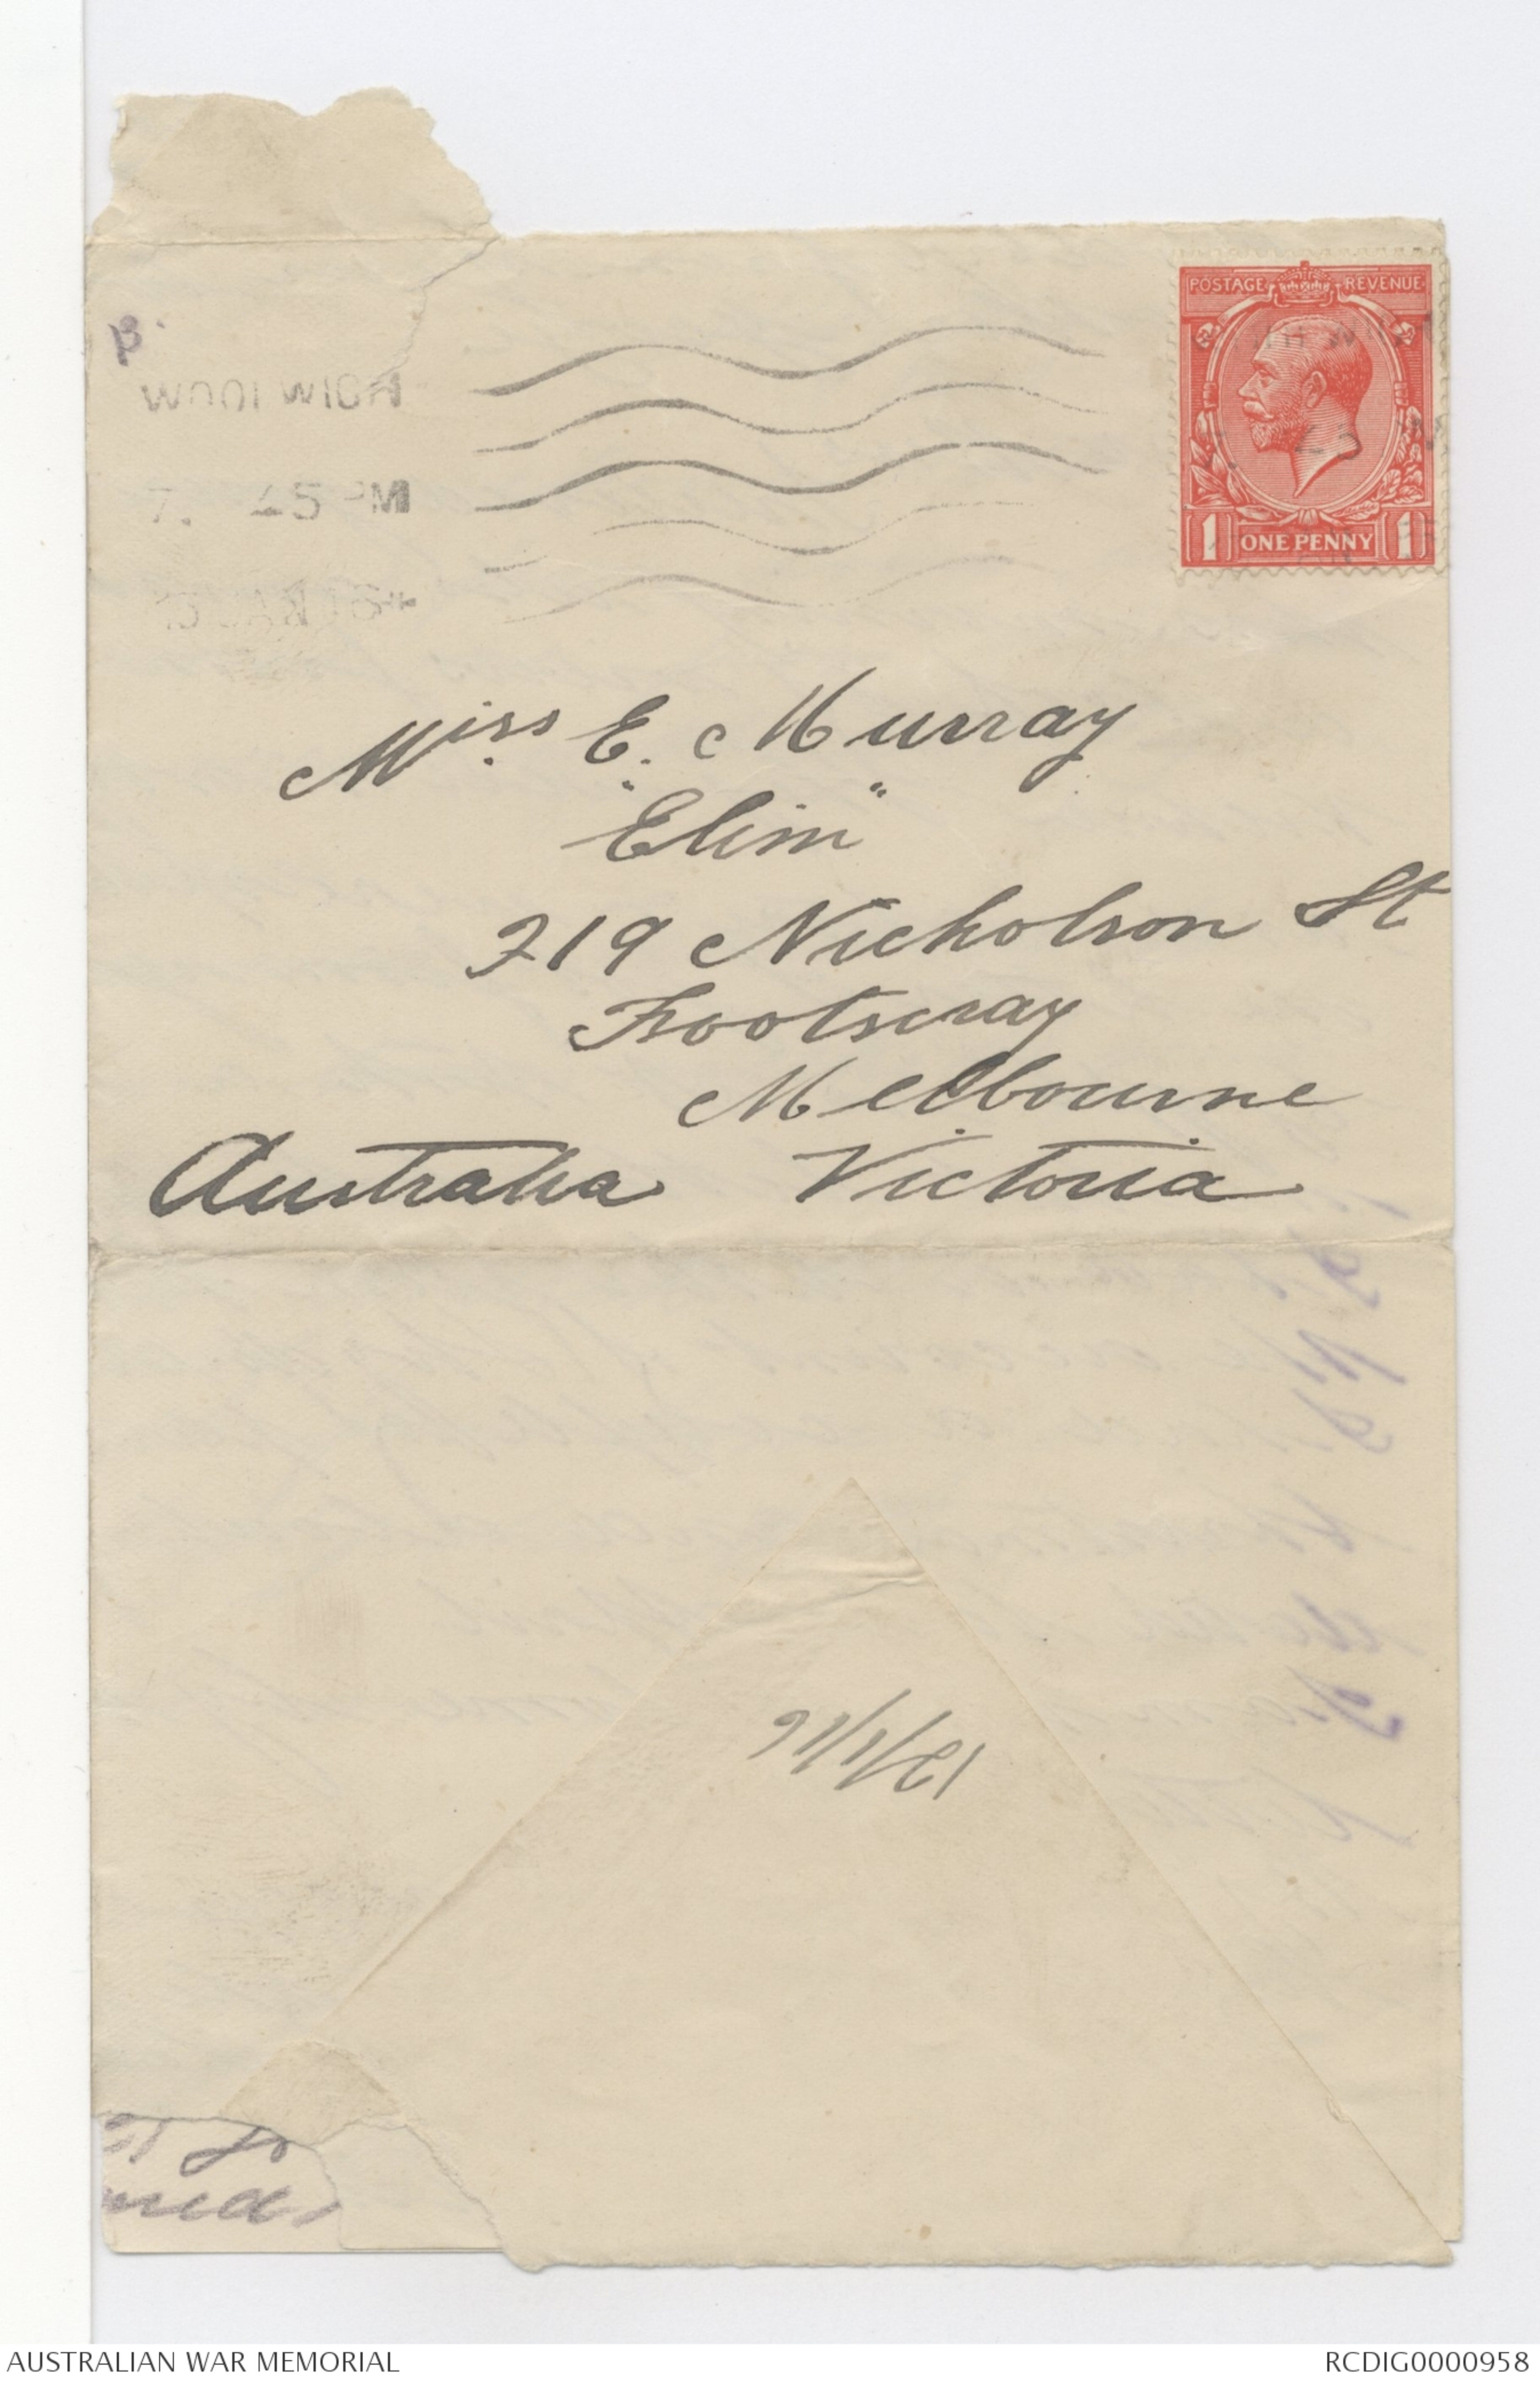 POSTAGE REVENUE
ONE PENNY
1 1
WOOLWICH
7. 45 PM
13 JAN 16
Miss E. Murray
"Elim"
219 Nicholson St
Footscray
Melbourne
Australia Victoria
12/1/16
AUSTRALIAN WAR MEMORIAL
RCDIG0000958